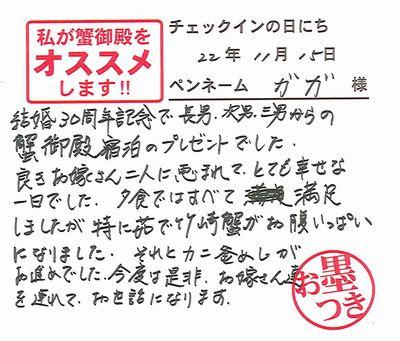 私が蟹御殿を
オススメ
します!!
チェックインの日にち
22年 11月 15日
ペンネーム ガガ 様
結婚30周年記念で長男、次男、三男からの
蟹御殿宿泊のプレゼントでした。
良きお嫁さん二人に恵まれて、とても幸せな
一日でした。夕食ではすべて 満足
しましたが特に茹で竹崎蟹がお腹いっぱい
になりました。それとカニ釜めしが
お進めでした。今度は是非、お嫁さん達
を連れて、お世話になります。
お墨つき